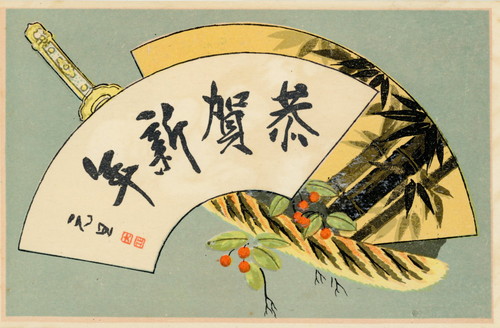 恭賀新年